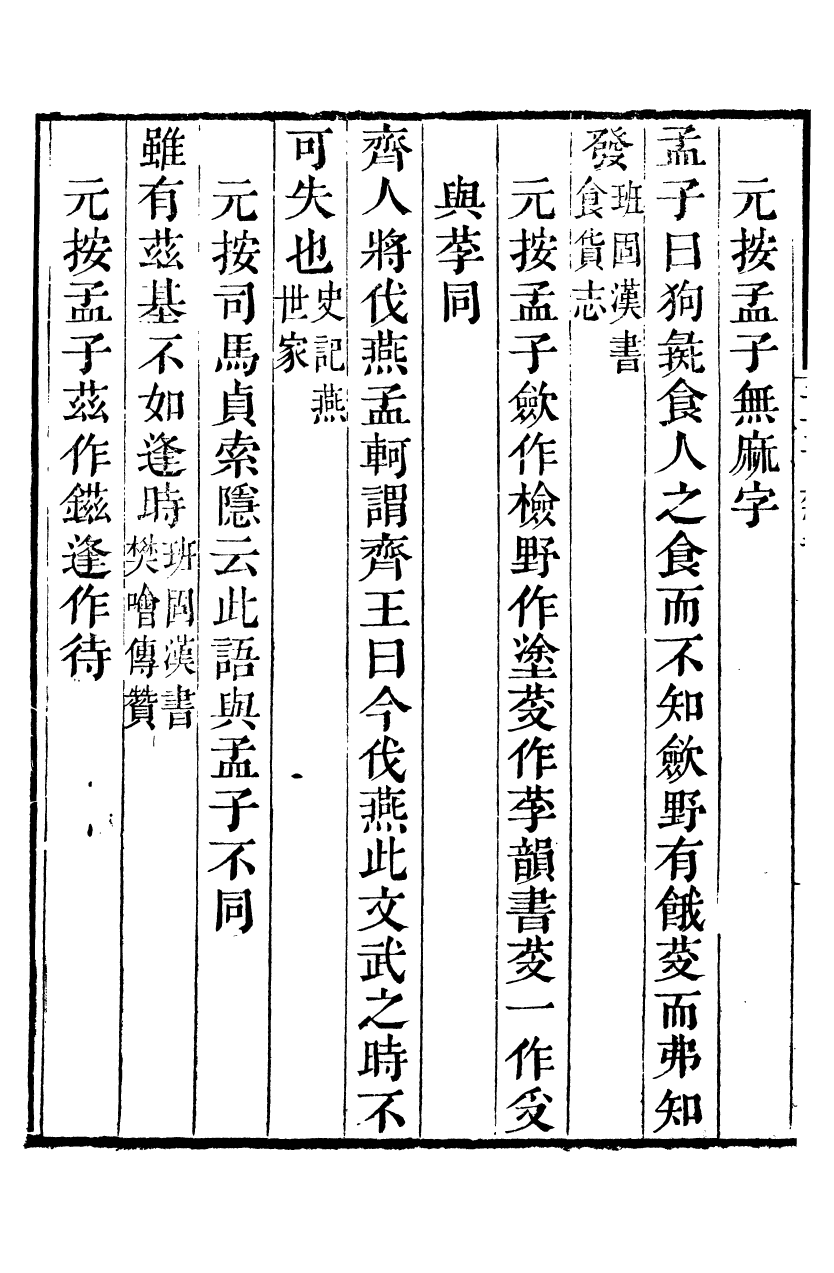 元按孟子無麻字
孟子曰狗彘食人之食而不知歛野有餓𦭼而弗知
發班固漢書食貨志
元按孟子歛作檢野作塗𦭼作莩韻書𦭼一作𠬪
與莩同
齊人將伐燕孟軻謂齊王曰今伐燕此文武之時不
可失也史記燕世家
元按司馬貞索隱云此語與孟子不同
雖有茲基不如逢時班固漢書樊噲傳贊
元按孟子茲作鎡逢作待